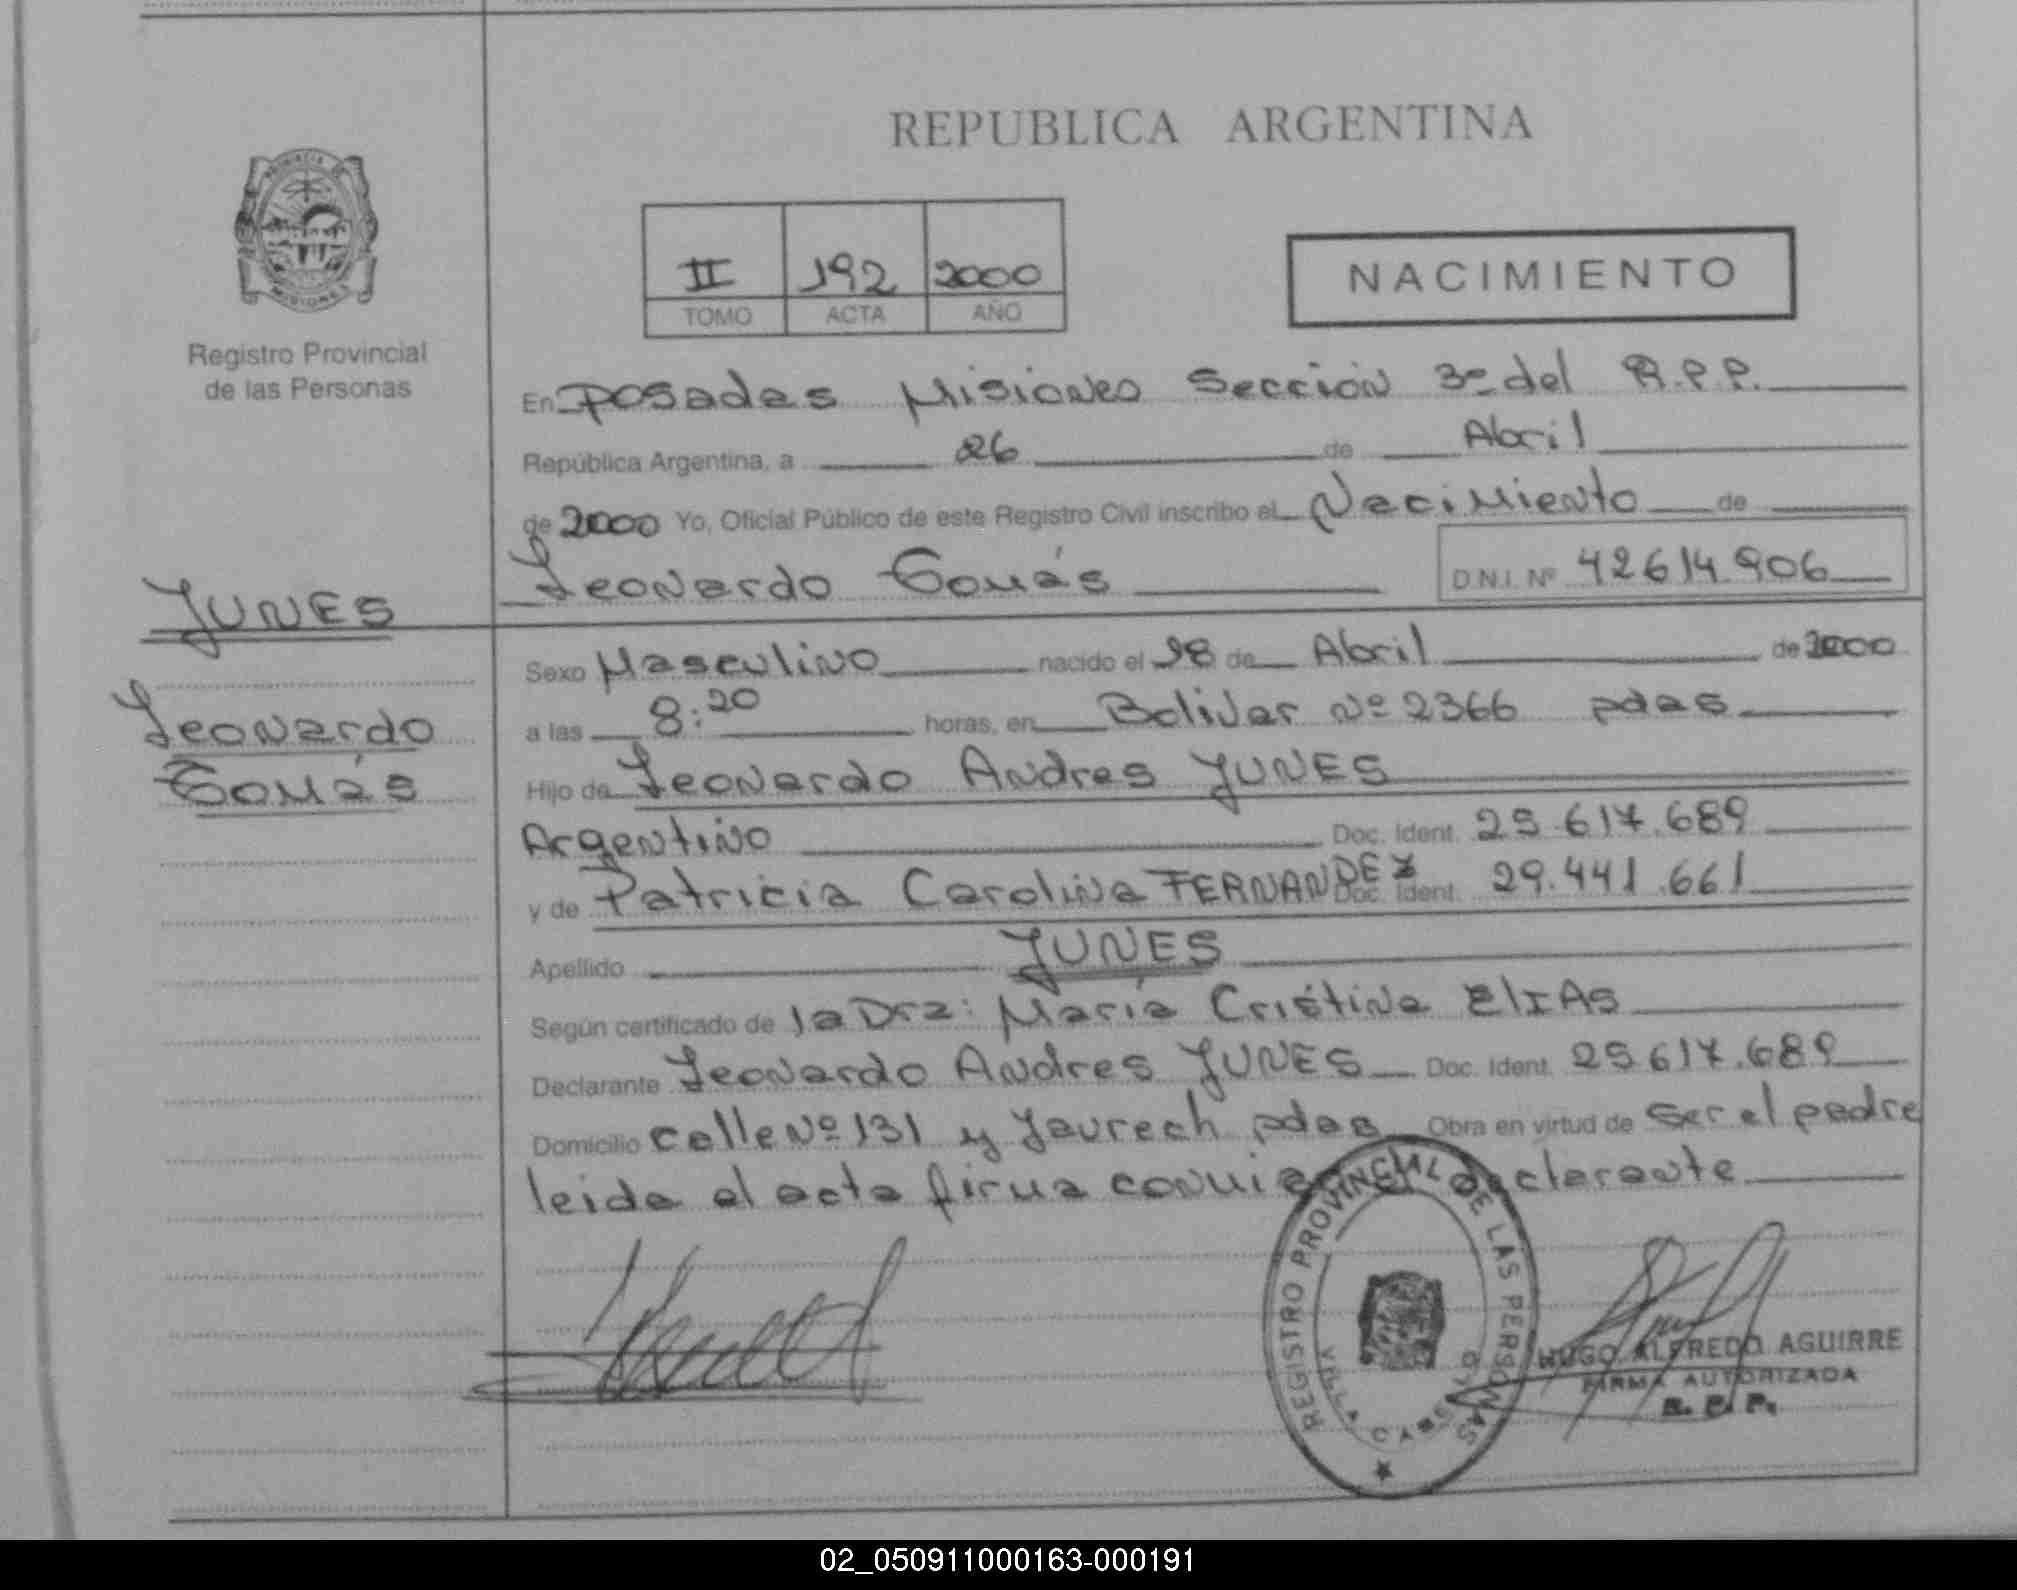 REPUBLICA ARGENTINA
PROVINCIA DE
MISIONES
Registro Provincial
de las Personas
II 192 2000
TOMO ACTA AÑO
NACIMIENTO
En Posadas Misiones Sección 3º del R.P.P.
República Argentina, a 26 de Abril
de 2000 Yo, Oficial Público de este Registro Civil inscribo el Nacimiento de
Leonardo Tomás D.N.I. Nº 42614906
YUNES
Leonardo
Tomás
Sexo Masculino nacido el 18 de Abril de 2000
a las 8:20 horas, en Bolivar Nº 2366 pdas
Hijo de Leonardo Andres YUNES
Argentino Doc. Ident. 25.617.689
y de Patricia Carolina FERNANDEZ Doc. Ident. 29.441.661
Apellido YUNES
Según certificado de la Dra: María Cristina ElIAS
Declarante Leonardo Andres YUNES Doc. Ident. 25617.689
Domicilio calle Nº 131 y Yaurech pdas Obra en virtud de ser el padre
leida el acta firma conmigo declarante
REGISTRO PROVINCIAL DE LAS PERSONAS
VILLA CABELLO
HUGO ALFREDO AGUIRRE
FIRMA AUTORIZADA
R. P. P.
02_050911000163-000191